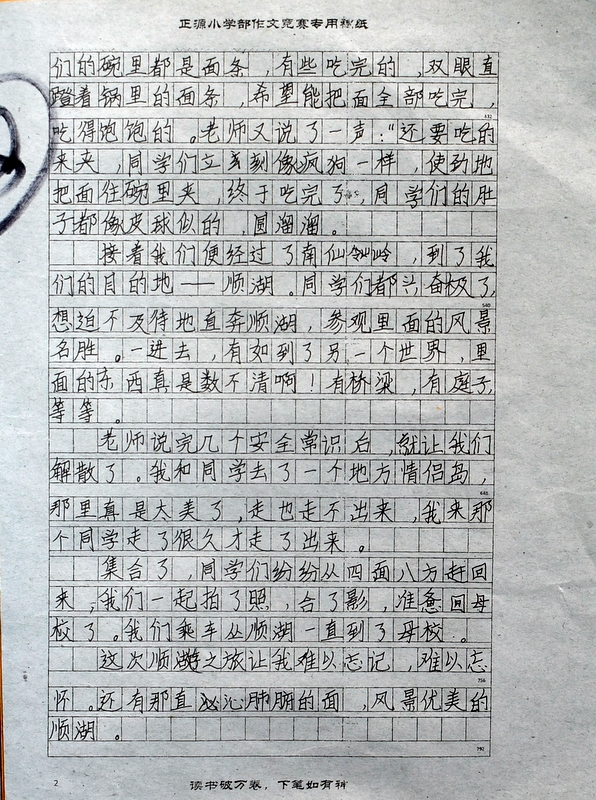 正源小学部作文竞赛专用稿纸
们的碗里都是面条，有些吃完的，双眼直
蹬着锅里的面条，希望能把面全部吃完，
432
吃得饱饱的。老师又说了一声："还要吃的
来夹，同学们立刻像疯狗一样，使劲地
把面往碗里夹，终于吃完了，同学们的肚
子都像皮球似的，圆溜溜。
接着我们便经过了南仙岭，到了我
们的目的地——顺湖。同学们都兴奋极了，
540
想迫不及待地直奔顺湖，参观里面的风景
名胜。一进去，有如到了另一个世界，里
面的东西真是数不清啊！有桥梁，有庭子
等等。
老师说完几个安全常识后，就让我们
解散了。我和同学去了一个地方情侣岛，
648
那里真是太美了，走也走不出来，我来那
个同学走了很久才走了出来。
集合了，同学们纷纷从四面八方赶回
来，我们一起拍了照，合了影，准备回母
校了。我们乘车从顺湖一直到了母校。
这次顺湖之旅让我难以忘记，难以忘
756
怀。还有那直沁肺腑的面，风景优美的
顺湖。
792
2
读书破万卷，下笔如有神